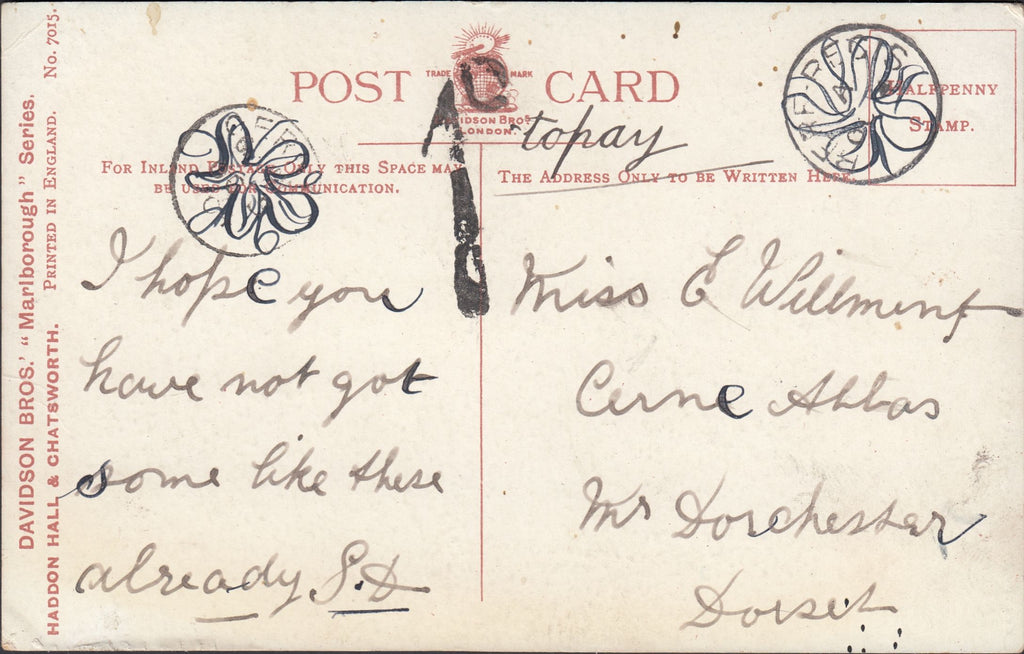 DAVIDSON BROS.' "Marlborough" Series.
PRINTED IN ENGLAND. No. 7015.
HADDON HALL & CHATSWORTH.
POST CARD
TRADE MARK
DAVIDSON BROS.
LONDON.
HALFPENNY
STAMP.
to pay
FOR INLAND POSTAGE ONLY THIS SPACE MAY
BE USED FOR COMMUNICATION.
THE ADDRESS ONLY TO BE WRITTEN HERE.
I hope you
have not got
some like these
already S.D
Miss E Willment
Cerne Abbas
Nr Dorchester
Dorset